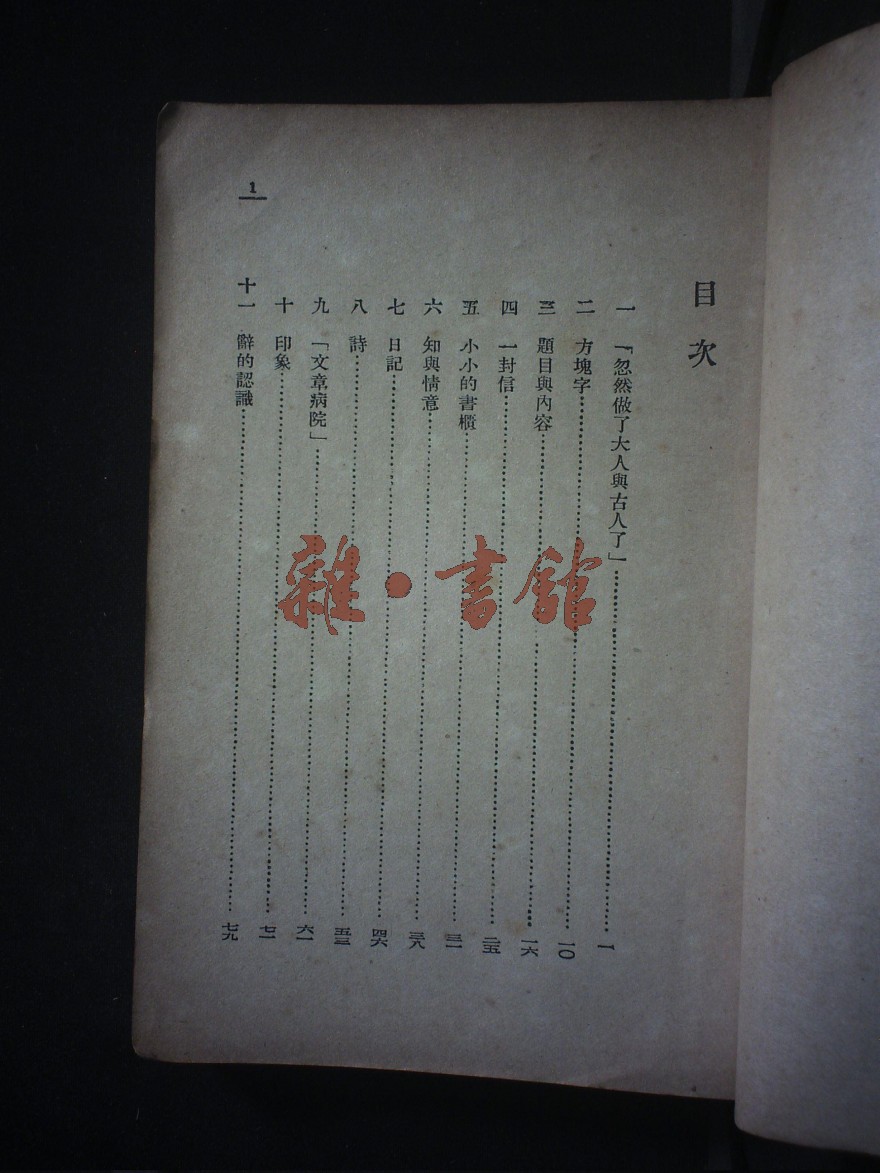 目次
一 「忽然做了大人與古人了」 一
二 方塊字 一〇
三 題目與內容 一六
四 一封信 二五
五 小小的書櫃 三一
六 知與情意 三八
七 日記 四六
八 詩 五三
九 「文章病院」 六一
十 印象 七一
十一 辭的認識 七九
1
雜·書館